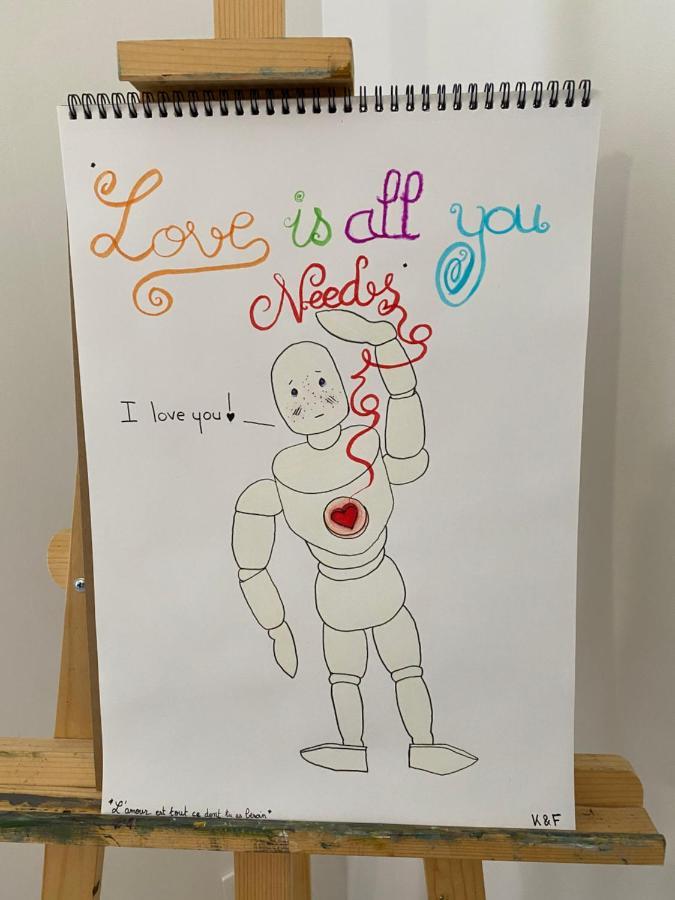 "Love is all you
Needs"
I love you!
"L'amour est tout ce dont tu as besoin"
K & F